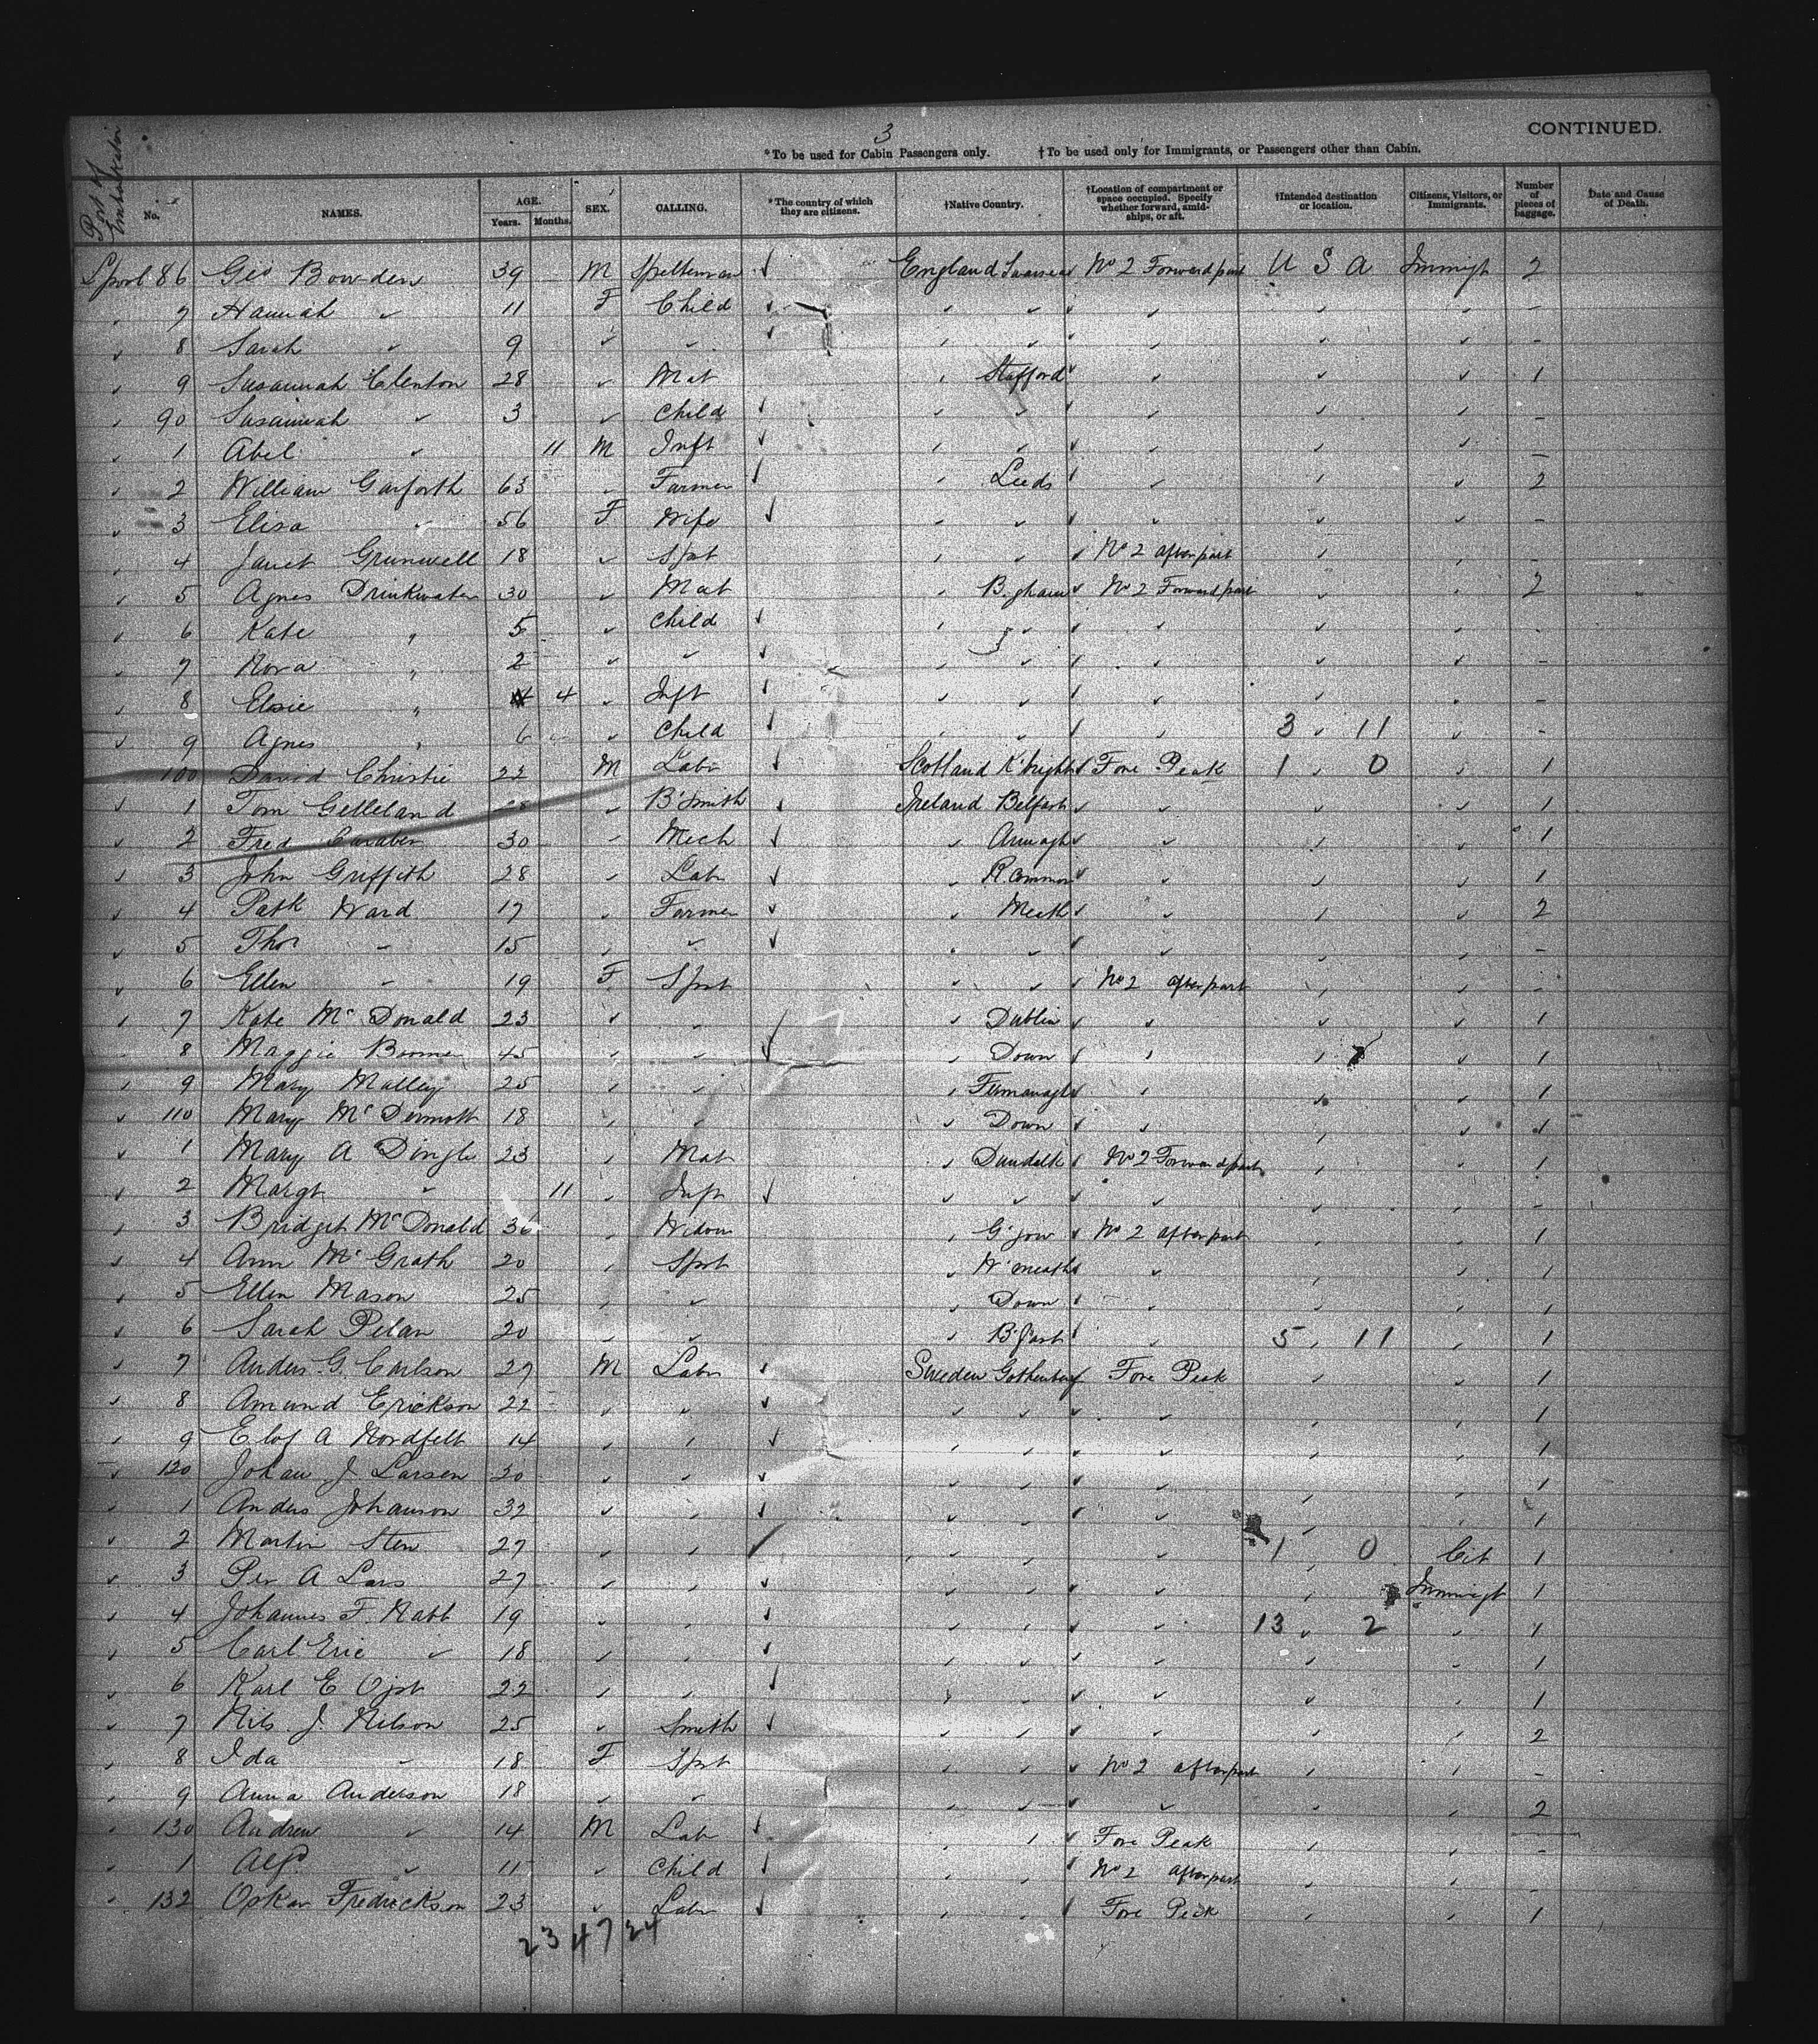 3
CONTINUED.
*To be used for Cabin Passengers only. †To be used only for Immigrants, or Passengers other than Cabin.
Port of Embarkation
No. NAMES. AGE. Years. Months. SEX. CALLING. *The country of which they are citizens. †Native Country. †Location of compartment or space occupied. Specify whether forward, amidships, or aft. †Intended destination or location. Citizens, Visitors, or Immigrants. Number of pieces of baggage. Date and Cause of Death.
Lpool 86 Geo Bowden 39 M Spelterman England Swansea No 2 Forward part U S A Immigt 2
7 Hannah " 11 F Child " " " " " -
8 Sarah " 9 " " " " " " " -
9 Susannah Clenton 28 " Mat " Stafford " " " 1
90 Susannah " 3 " Child " " " " " -
1 Abel " 11 M Inft " " " " " -
2 William Garforth 63 " Farmer " Leeds " " " 2
3 Eliza " 56 F Wife " " " " " -
4 Janet Grunwell 18 " Spst " " No 2 after part " " -
5 Agnes Drinkwater 30 " Mat " B.gham No 2 Forward part " " 2
6 Kate " 5 " Child " " " " " -
7 Nora " 2 " " " " " " " -
8 Elsie " 4 " Inft " " " " " -
9 Agnes " 6 " Child " " " 3 " 11 " -
100 David Christie 22 M Labr Scotland K'bright Fore Peak 1 " 0 " 1
1 Tom Gelleland 28 " B'Smith Ireland Belfast " " " 1
2 Fred 30 " Mech " Armagh " " " 1
3 John Griffith 28 " Labr " R.common " " " 1
4 Patk Ward 17 " Farmer " Meath " " " 2
5 Thos " 15 " " " " " " " -
6 Ellen " 19 F Spst " " No 2 after part " " -
7 Kate McDonald 23 " " " Dublin " " " 1
8 Maggie 45 " " " Down " " " 1
9 Mary Malley 25 " " " Fermanagh " " " 1
110 Mary McDermott 18 " " " Down " " " 1
1 Mary A Dingle 23 " Mat " Dundalk No 2 Forward part " " 1
2 Margt " 11 " Inft " " " " " -
3 Bridget McDonald 36 " Widow " G'gow No 2 after part " " 1
4 Ann McGrath 20 " Spst " W'meath " " " 1
5 Ellen Mason 25 " " " Down " " " 1
6 Sarah Pelan 20 " " " B'fast " 5 " 11 " 1
7 Anders G. Carlson 27 M Labr Sweden Gothenburg Fore Peak " " 1
8 Amund Erickson 22 " " " " " " " 1
9 Elof A Nordfelt 14 " " " " " " " 1
120 Johan J Larsen 30 " " " " " " " 1
1 Anders Johanson 32 " " " " " " " 1
2 Martin Sten 27 " " " " " 1 " 0 Cit 1
3 Per A Lars 27 " " " " " " Immigt 1
4 Johannes F. Nabb 19 " " " " " 13 " 2 " 1
5 Carl Eric " 18 " " " " " " " 1
6 Karl E Ojst 22 " " " " " " " 1
7 Nils J. Nilson 25 " Smith " " " " " 2
8 Ida " 18 F Spst " " No 2 after part " " -
9 Anna Anderson 18 " " " " " " " 2
130 Andrew " 14 M Labr " " Fore Peak " " -
1 Alfd " 11 " Child " " No 2 after part " " -
132 Oskar Fredrickson 23 " Labr " " Fore Peak " " 1
23 47 24